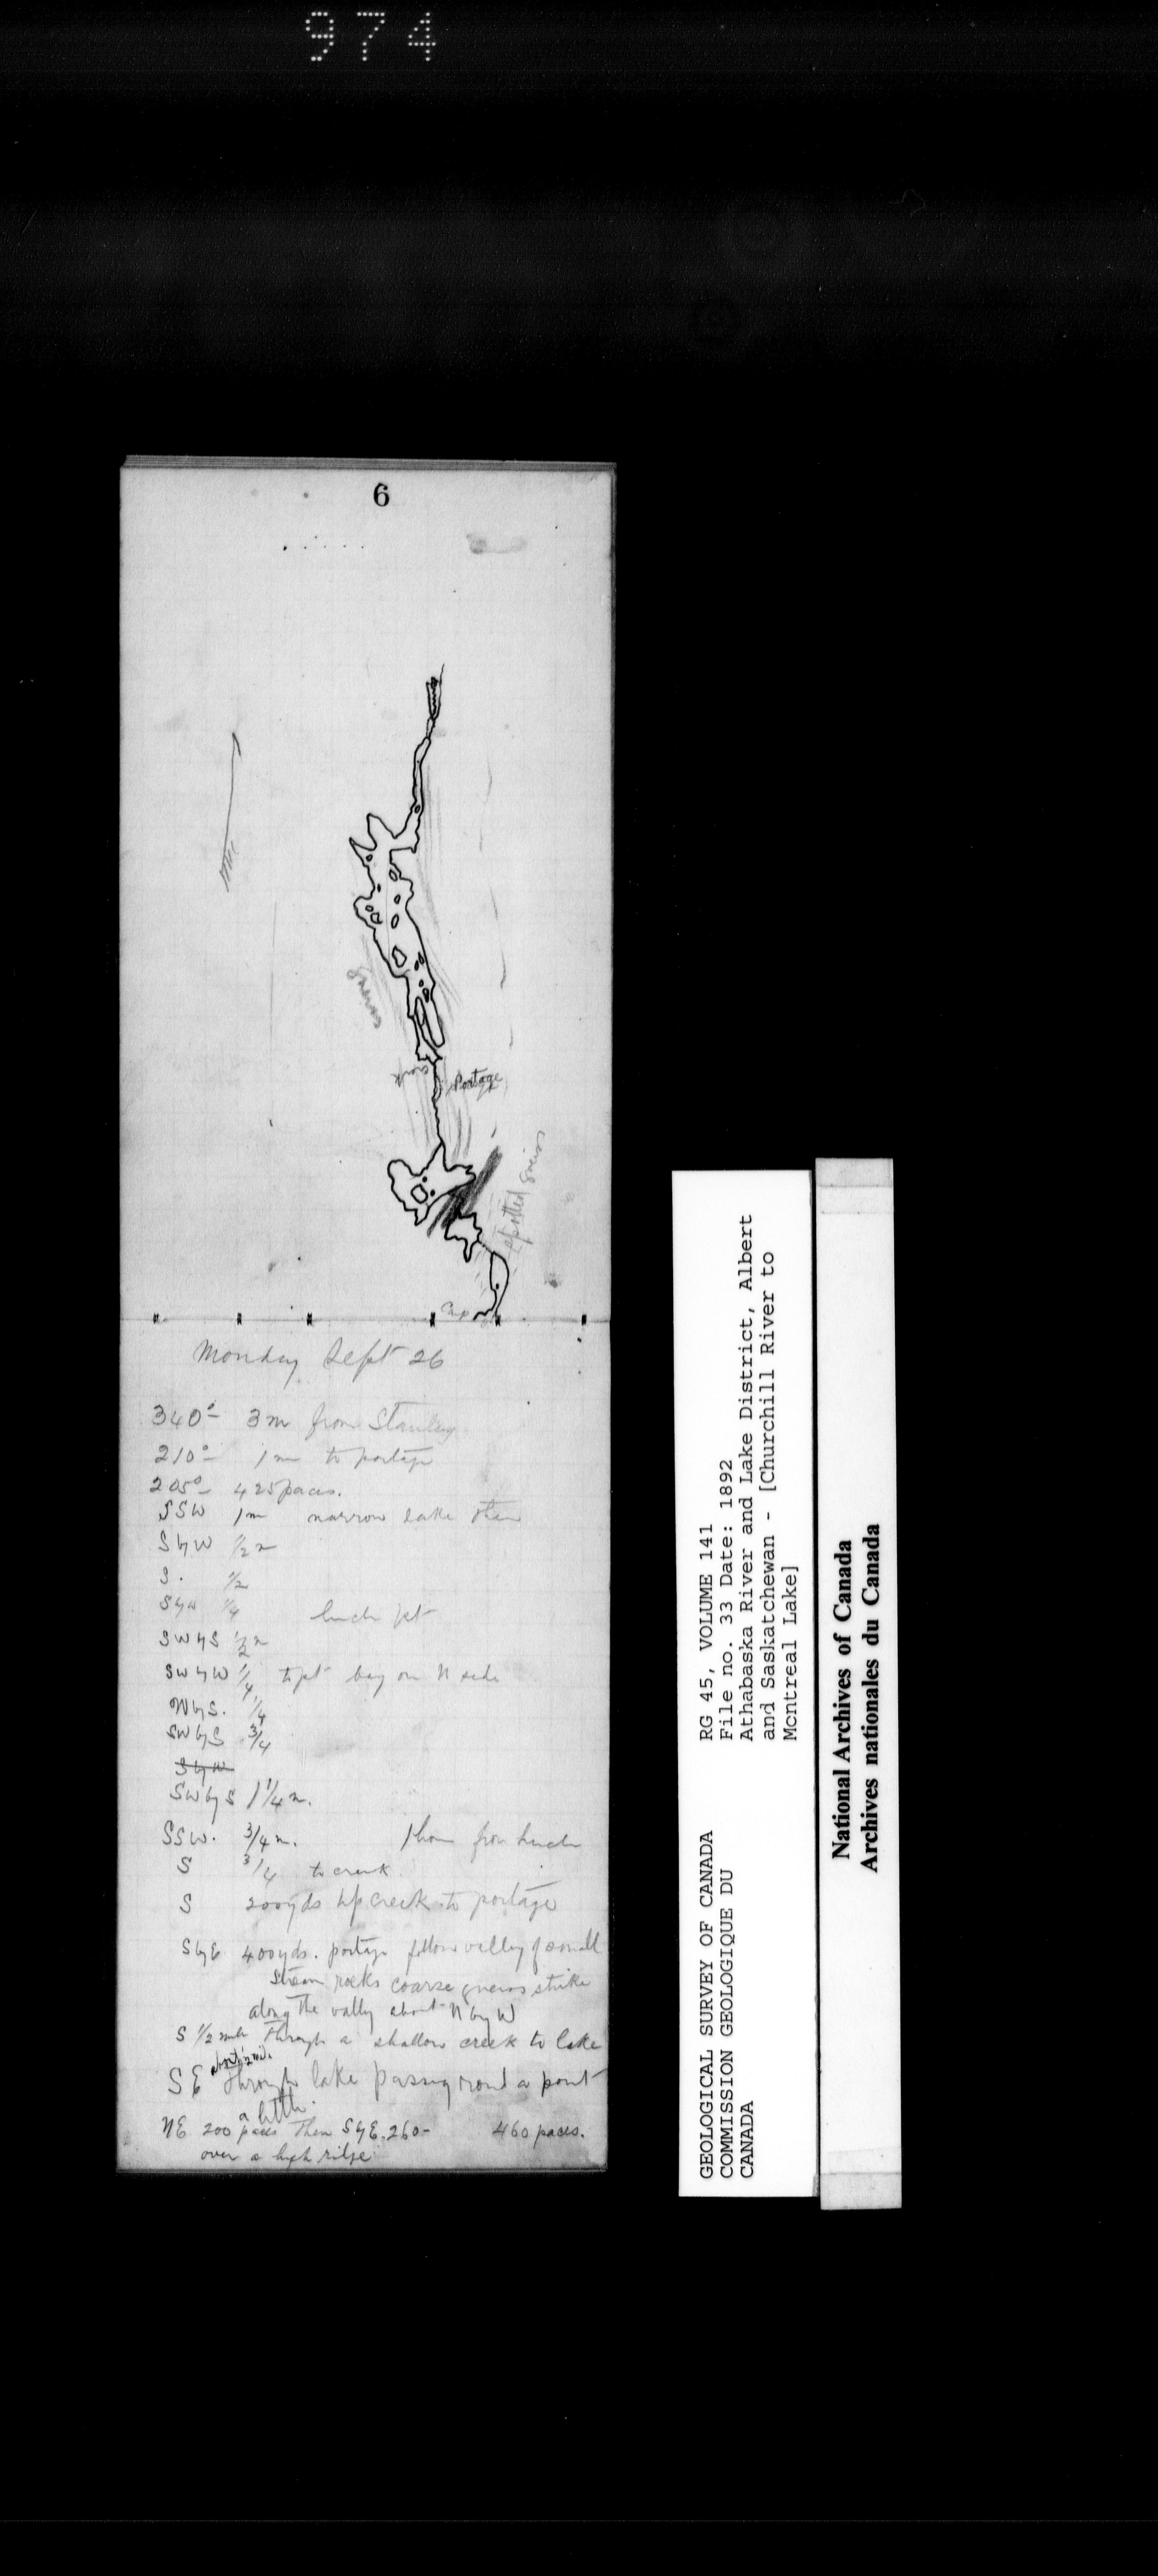 974
6
gneiss
creek
Portage
spotted gneiss
Camp
Monday Sept 26
340°- 3 m from Stanley
210°- 1 m to portage
205°- 425 paces.
SSW 1 m narrow lake then
S by W 1/2 m
S. 1/2
S by W 1/4 lunch pt
SW by S 1/2 m
SW by W 1/4 to pt bay on N side
W by S. 1/4
SW by S 3/4
S by W
SW by S 1 1/4 m.
SSW. 3/4 m. 1 hour from lunch
S 3/4 to creek.
S 200 yds up creek to portage
S by E 400 yds. portage follows valley of small
stream rocks coarse gneiss strike
along the valley about N by W
S 1/2 mile through a shallow creek to lake
about 1/2 mi.
SE through lake passing round a point
a little.
NE 200 paces then S by E. 260- 460 paces.
over a high ridge
GEOLOGICAL SURVEY OF CANADA
COMMISSION GEOLOGIQUE DU
CANADA
RG 45, VOLUME 141
File no. 33 Date: 1892
Athabaska River and Lake District, Albert
and Saskatchewan - [Churchill River to
Montreal Lake]
National Archives of Canada
Archives nationales du Canada